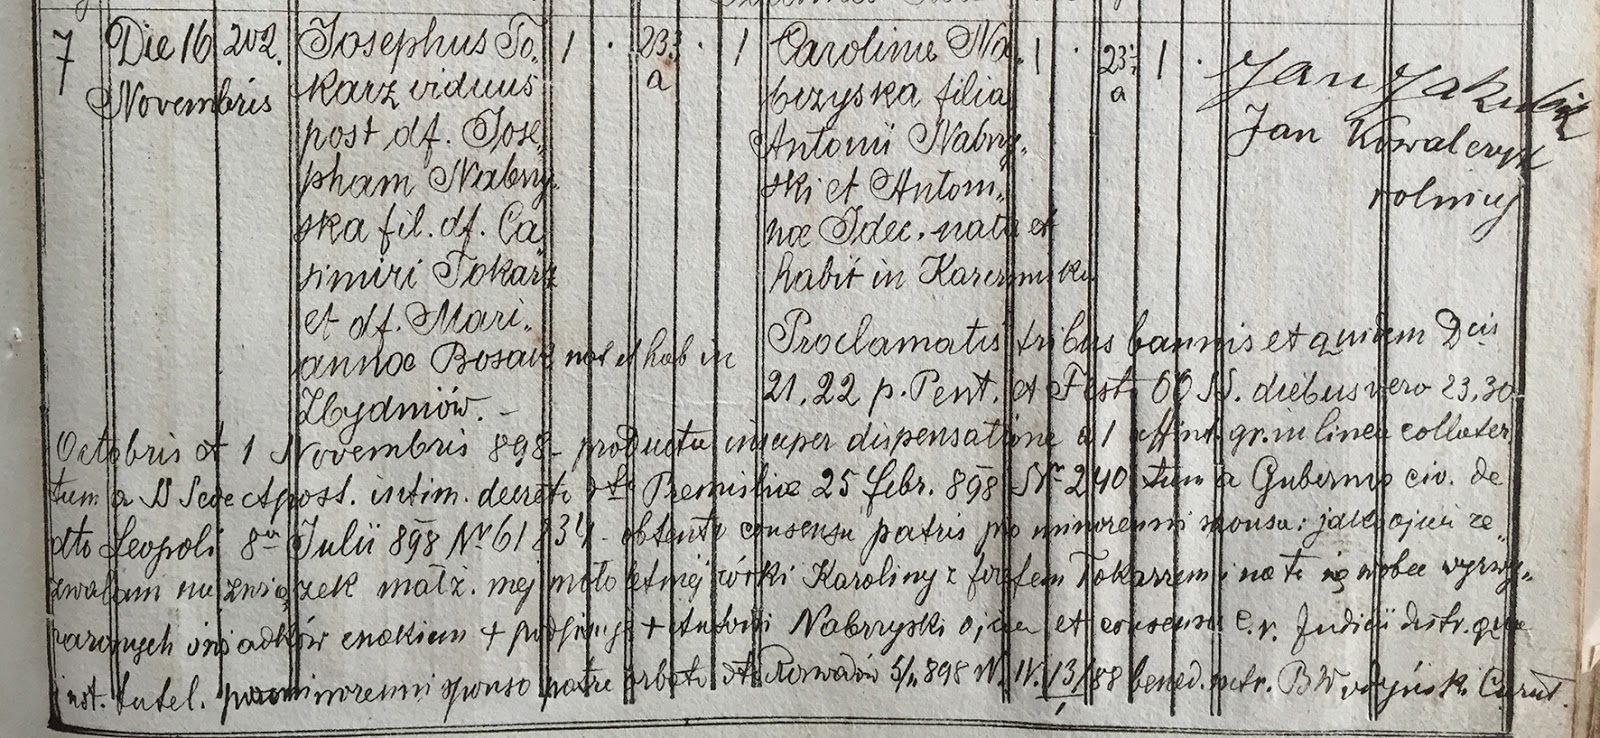 7 Die 16 202. Novembris
Josephus To-
karz viduus
post df. Jose-
pham Nabrzy-
ska fil. df. Ca
simiri Tokarz
et df. Mari-
annæ Bosak nat et hab in
Zbydniów. -
1 . 23 ½ a . 1
Carolina Na-
brzyska filia
Antonii Nabrzy-
ski et Antoni-
næ Idec. nata et
habit in Karczmiska
1 . 23 ½ a 1 .
Jan Jakubik
Jan Kowalczyk
rolnicy
Proclamatis tribus bannis et quidem Dcis
21, 22 p. Pent. et Fest OO SS. diebus vero 23, 30
Octobris et 1 Novembris 898 producta insuper dispensatione a 1 affinit. gr. in linea collater
tum a S Sede Apost. intim. decreto dto Premisliæ 25 febr. 898 Nr 240 tum a Gubernio civ. de
dto Leopoli 8va Julii 898 Nr 61834 obtento consensu patris pro minorenni sponsa: jako ojciec ze
zwalam na związek małż. mej małoletniej córki Karoliny z Józefem Tokarzem i na to się wobec
świadków znakiem + podpisuję + Antoni Nabrzyski ojciec et consensu C. r. Judicii distr. qua
inst. tutel. pro minorenni sponso patre orbato dto Rozwadów 898 N. IV. 13/88 bened. mtr.